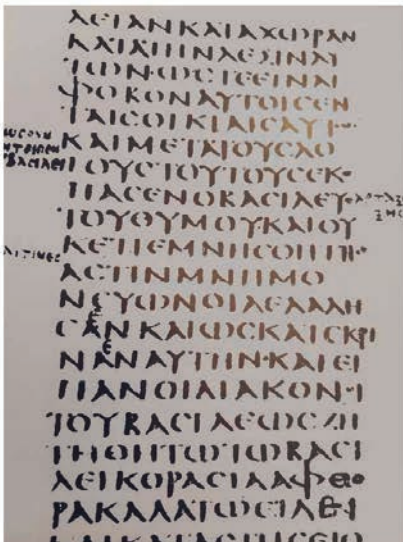 ΛΕΙΑΝΚΑΤΑΧΩΡΑΝ
ΚΑΤΑΤΗΝΛΕΞΙΝΑΥ
ΤΩΝ·ΩϹΤΕΕΙΝΑΙ
ΦΟΒΟΝΑΥΤΟΙϹΕΝ
ΤΑΙϹΟΙΚΙΑΙϹΑΥΤ
ΚΑΙΜΕΤΑΤΟΥϹΛΟ
ΓΟΥϹΤΟΥΤΟΥϹΕΚΟ
ΠΑϹΕΝΟΒΑϹΙΛΕΥ
ΤΟΥΘΥΜΟΥΚΑΙΟΥ
ΚΕΤΙΕΜΝΗϹΘΗΤΗ
ΑϹΤΙΝΜΝΗΜΟ
ΝΕΥΩΝΟΙΑΕΛΑΛΗ
ϹΕΝΚΑΙΩϹΚΑΤΕΚΡΙ
ΝΕΝΑΥΤΗΝ·ΚΑΙΕΙ
ΠΑΝΟΙΔΙΑΚΟΝΟΙ
ΤΟΥΒΑϹΙΛΕΩϹΖΗ
ΤΗΘΗΤΩΤΩΒΑϹΙ
ΛΕΙΚΟΡΑϹΙΑΑΦΘΟ
ΡΑΚΑΛΑΤΩΕΙΔΕΙ